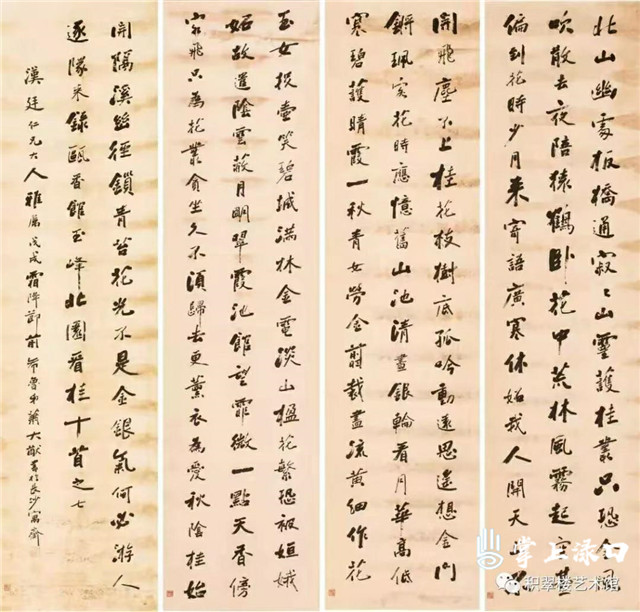 北山幽處板橋通寂寂山靈護桂叢只恐金風
吹散去夜陪猿鶴卧花中荒林風霧起空
偏到花時少月来寄語廣寒休妬我人開天
開飛塵不上桂花枝樹底孤吟動遠思遥想金門
鏘珮客花時應憶舊山池清晝銀輪看月華高低
寒碧護晴霞一秋青女勞金剪裁盡流黄細作花
玉女投壺笑碧城滿林金電淡山楹花繁恐被姮娥
妬故遣陰雲蔽月明翠霞池館望霏微一點天香傍
客飛只為花叢貪坐久不須歸去更薰衣為愛秋陰桂始
開隔溪幽徑鎖青苔花光不是金銀氣何必游人
逐隊来錄甌香館玉峰北園看桂十首之七
漢廷仁兄大人雅屬戊戌霜降節前
書於長沙寓齋
掌上渌口
积翠楼艺术馆